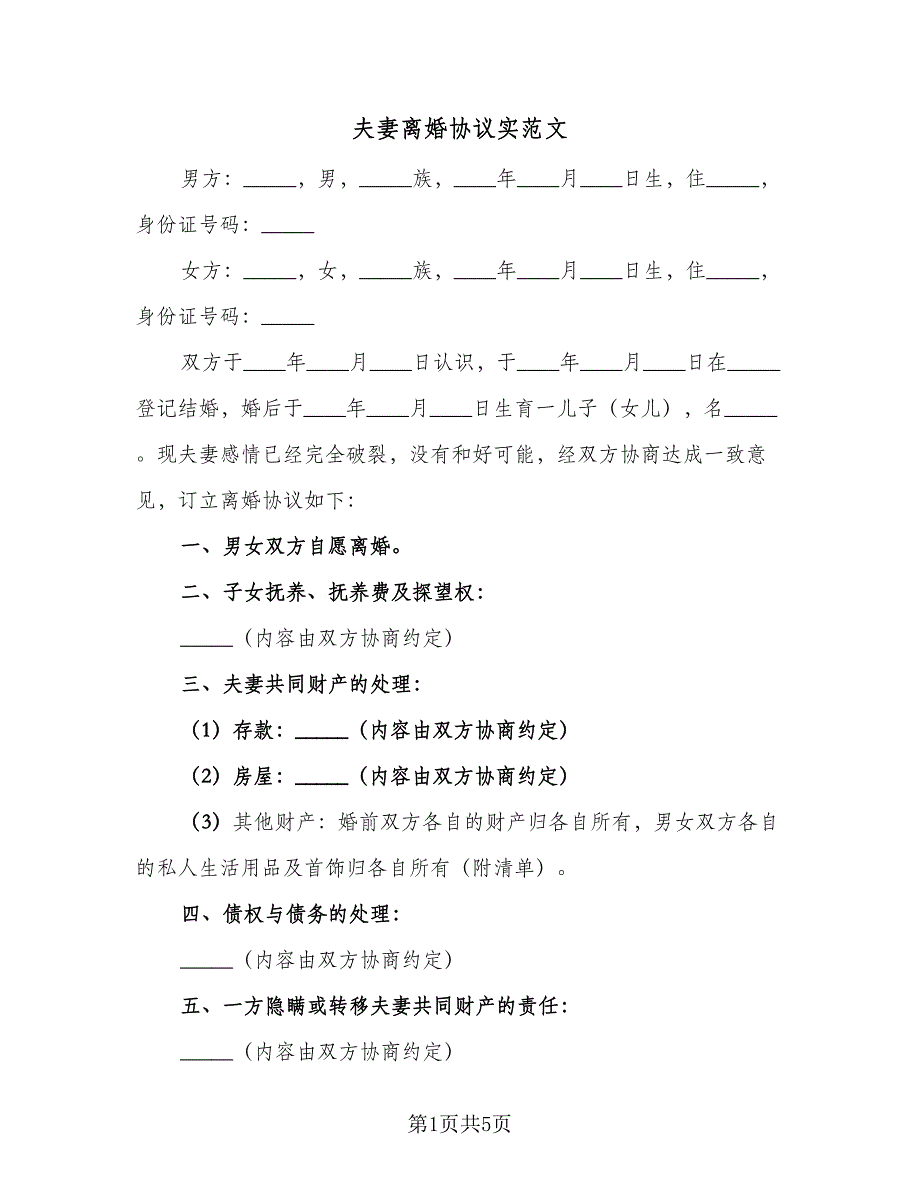 夫妻离婚协议实范文
男方：_____，男，_____族，____年____月____日生，住_____，
身份证号码：_____
女方：_____，女，_____族，____年____月____日生，住_____，
身份证号码：_____
双方于____年____月____日认识，于____年____月____日在_____
登记结婚，婚后于____年____月____日生育一儿子（女儿），名_____
。现夫妻感情已经完全破裂，没有和好可能，经双方协商达成一致意
见，订立离婚协议如下：
一、男女双方自愿离婚。
二、子女抚养、抚养费及探望权：
_____（内容由双方协商约定）
三、夫妻共同财产的处理：
（1）存款：_____（内容由双方协商约定）
（2）房屋：_____（内容由双方协商约定）
（3）其他财产：婚前双方各自的财产归各自所有，男女双方各自
的私人生活用品及首饰归各自所有（附清单）。
四、债权与债务的处理：
_____（内容由双方协商约定）
五、一方隐瞒或转移夫妻共同财产的责任：
_____（内容由双方协商约定）
第1页共5页